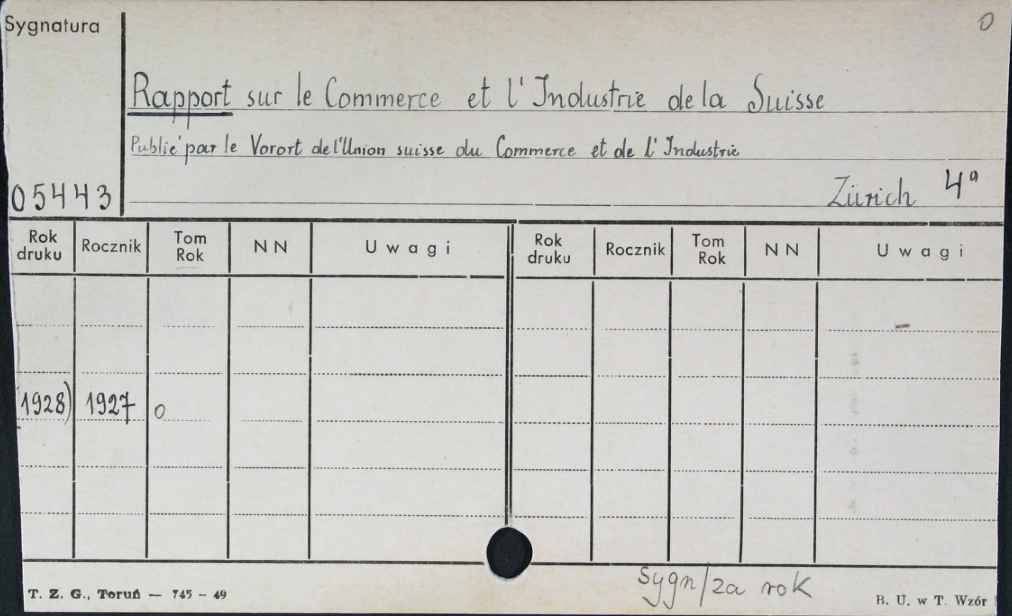 Sygnatura
0
Rapport sur le Commerce et l'Industrie de la Suisse
Publié par le Vorort de l'Union suisse du Commerce et de l'Industrie
05443
Zürich 4°
Rok druku Rocznik Tom Rok N N U w a g i Rok druku Rocznik Tom Rok N N U w a g i
1928) 1927 o
sygn/za rok
T. Z. G., Toruń — 745 - 49
B. U. w T. Wzór